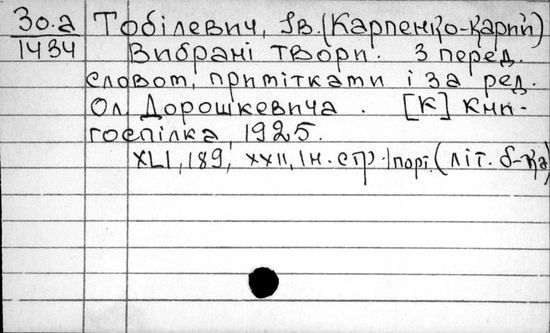 Зо.а Тобілевич, Ів. (Карпенко-Карий)
1434 Вибрані твори. З перед.
словом, примітками і за ред.
Ол. Дорошкевича. [К] Кни-
госпілка, 1925.
XLI, 189, XXII, 1 н. стр. 1 порт. (літ. б-ка)